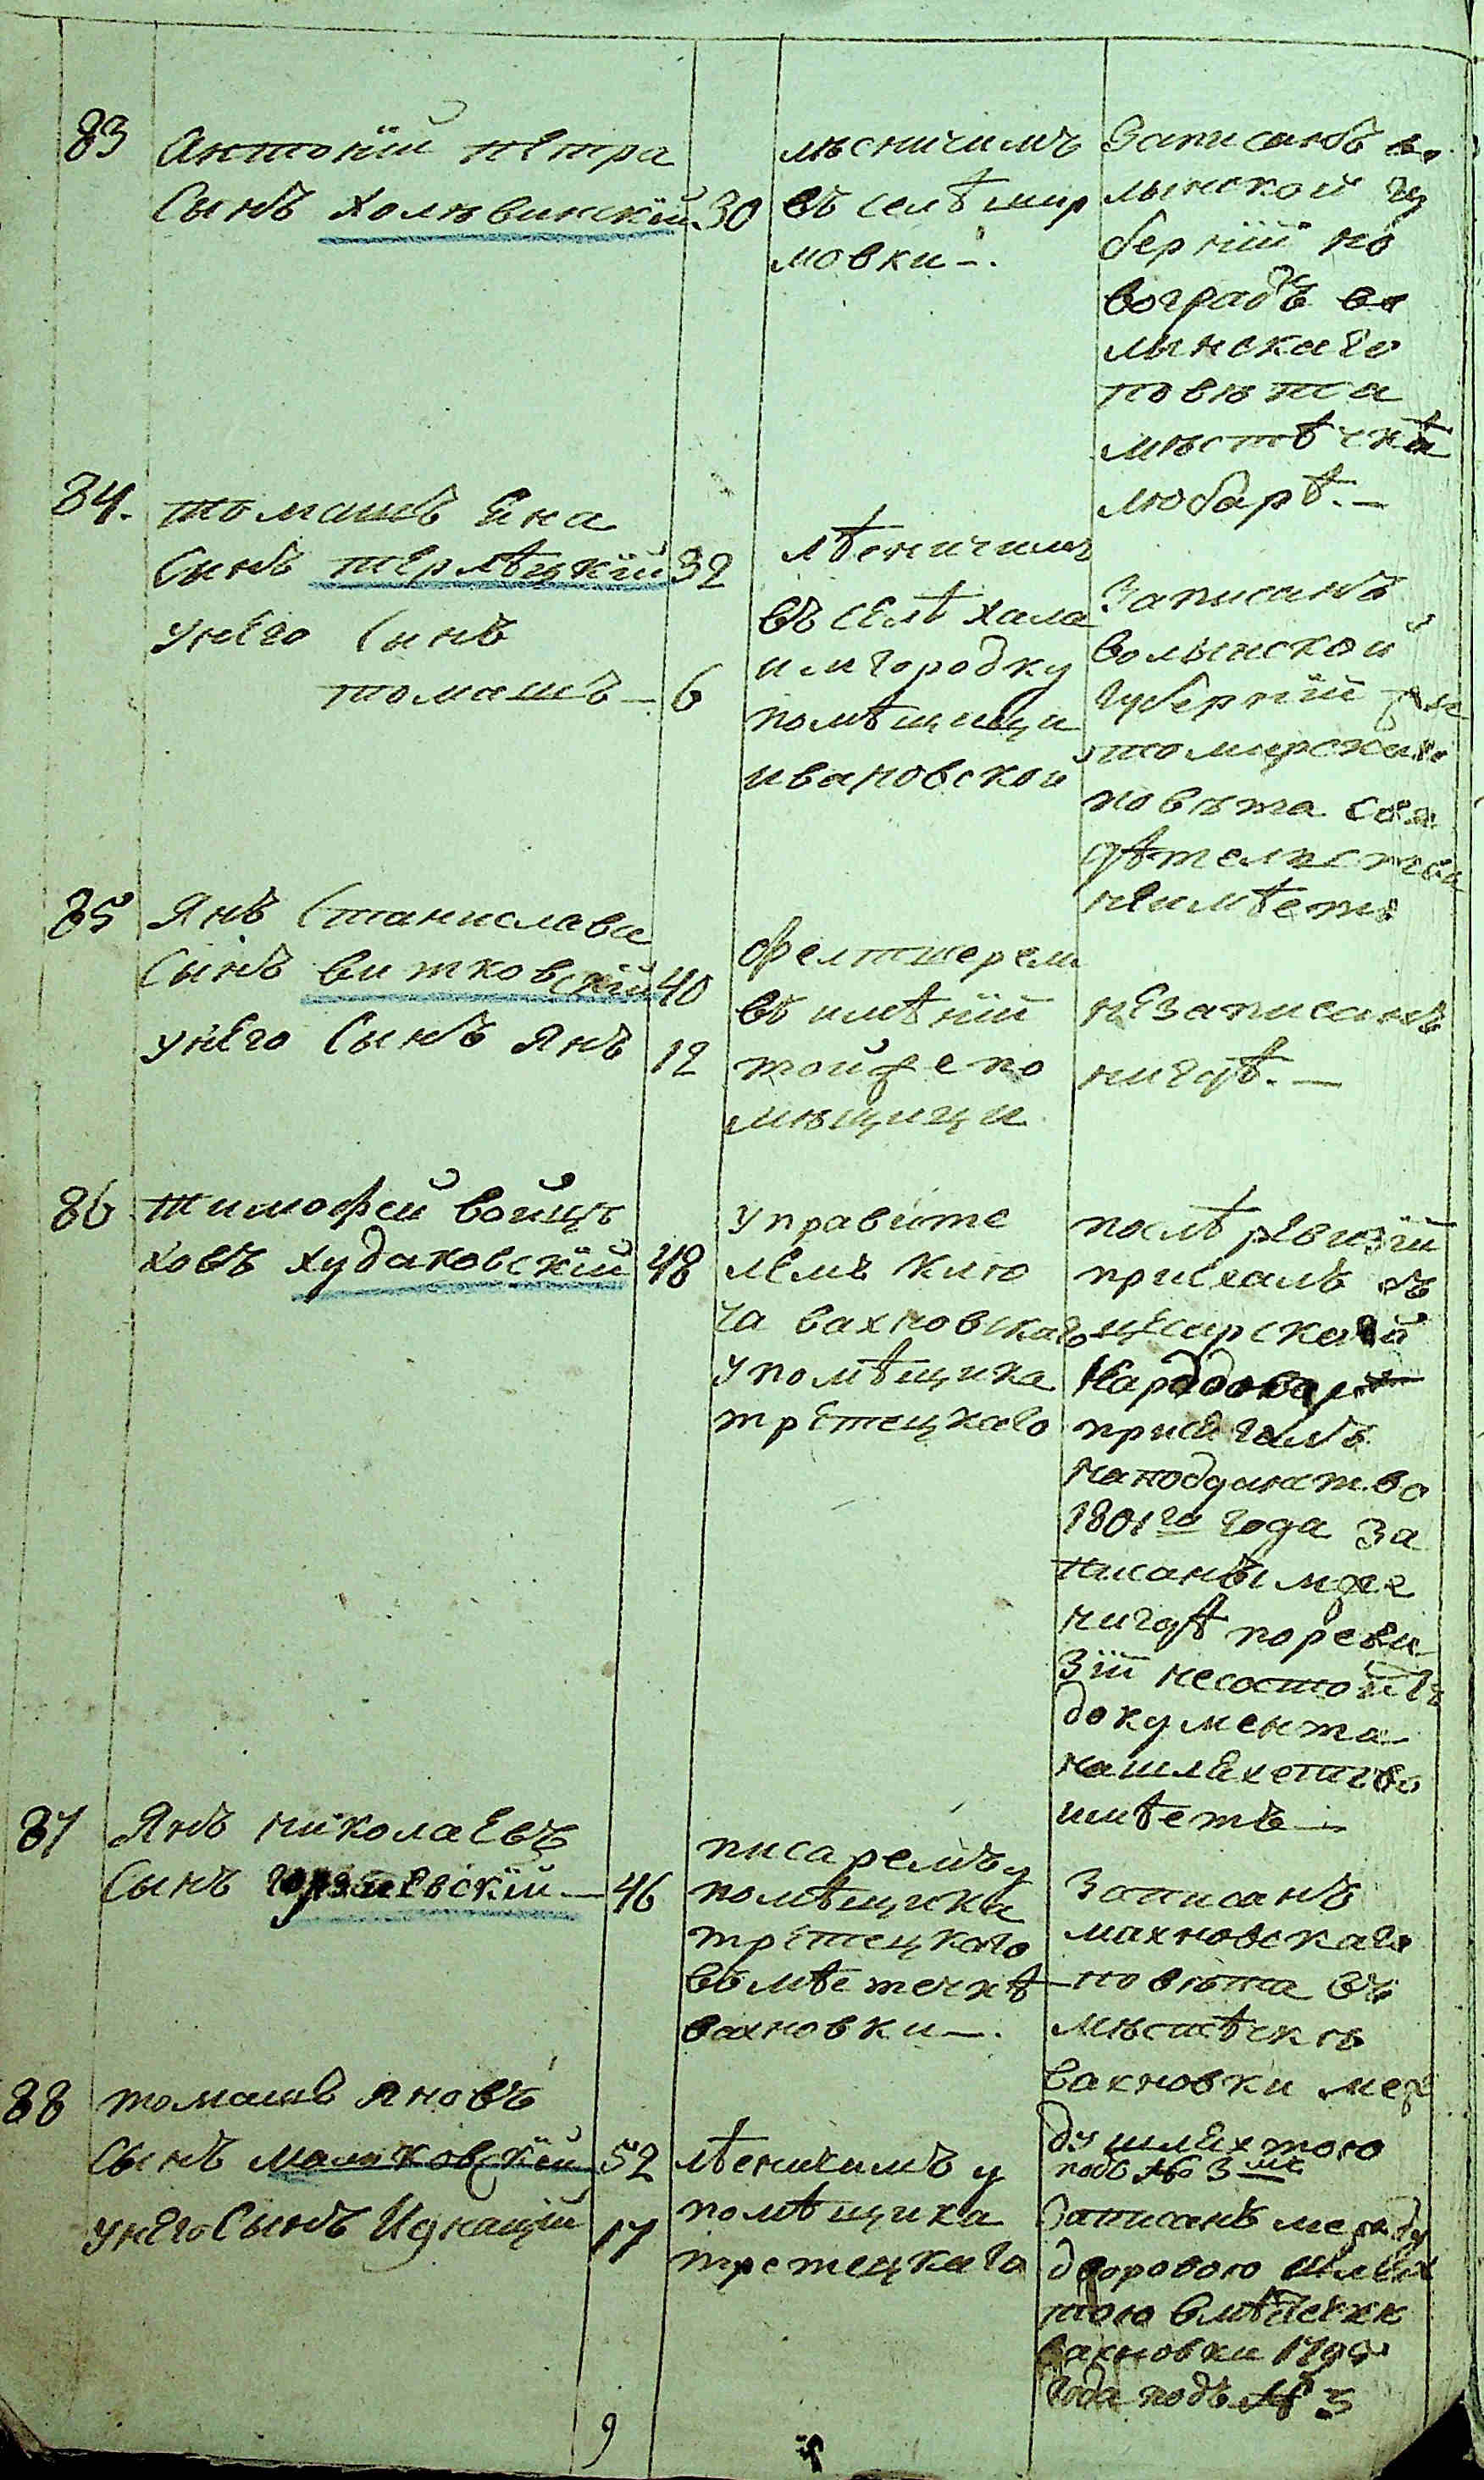 83
Антоній петра
Сынъ Холѣвинскій 30
лѣсничимъ
въ селѣ шир
мовки -.
Записанъ во
лынской гу
берніи но
воградъ во
лынскаго
повѣта
мѣстѣчкѣ
любарѣ. -
84.
томашъ Яна
Сынъ терлѣцкій 32
унего Синъ
томашъ - 6
лѣсничимъ
въ селѣ хала
имгородку
помѣщици
ивановской
Записанъ
волынской
губерніи жи
томирскаго
повѣта сви
дѣтельства
неимѣетъ
85
Янъ Станислава
Сынъ витковскій 40
унего Сынъ Янъ 12
фелтшеремъ
въ имѣніи
тойже по
мѣщици
незаписанъ
нигдѣ. -
86
тимофей войце
ховъ худаковскій 48
управите
лемъ клю
ча вахновскаго
упомѣщика
третецкаго
послѣ ревизіи
приехалъ съ
цесарской
присягалъ
наподданство
1801го года за
писанъ
нигдѣ пореви
зіи несостоитъ
документа
нашляхетство
имѣетъ -
87
Янъ николаевъ
Сынъ - 46
писаремъ у
помѣщика
третецкаго
въ мѣстечкѣ
вахновки -.
Записанъ
махновскаго
повѣта въ
мѣстѣчкѣ
вахновки меж
ду шляхтою
подъ № 3мъ
88
томашъ яновъ
сынъ малиховскій 52
унего Сынъ Игнацій 17
лѣсничимъ у
помѣщика
третецкаго
Записанъ между
дворовою шлях
тою вмѣстечкѣ
вахновки 1795
года подъ № 5
9